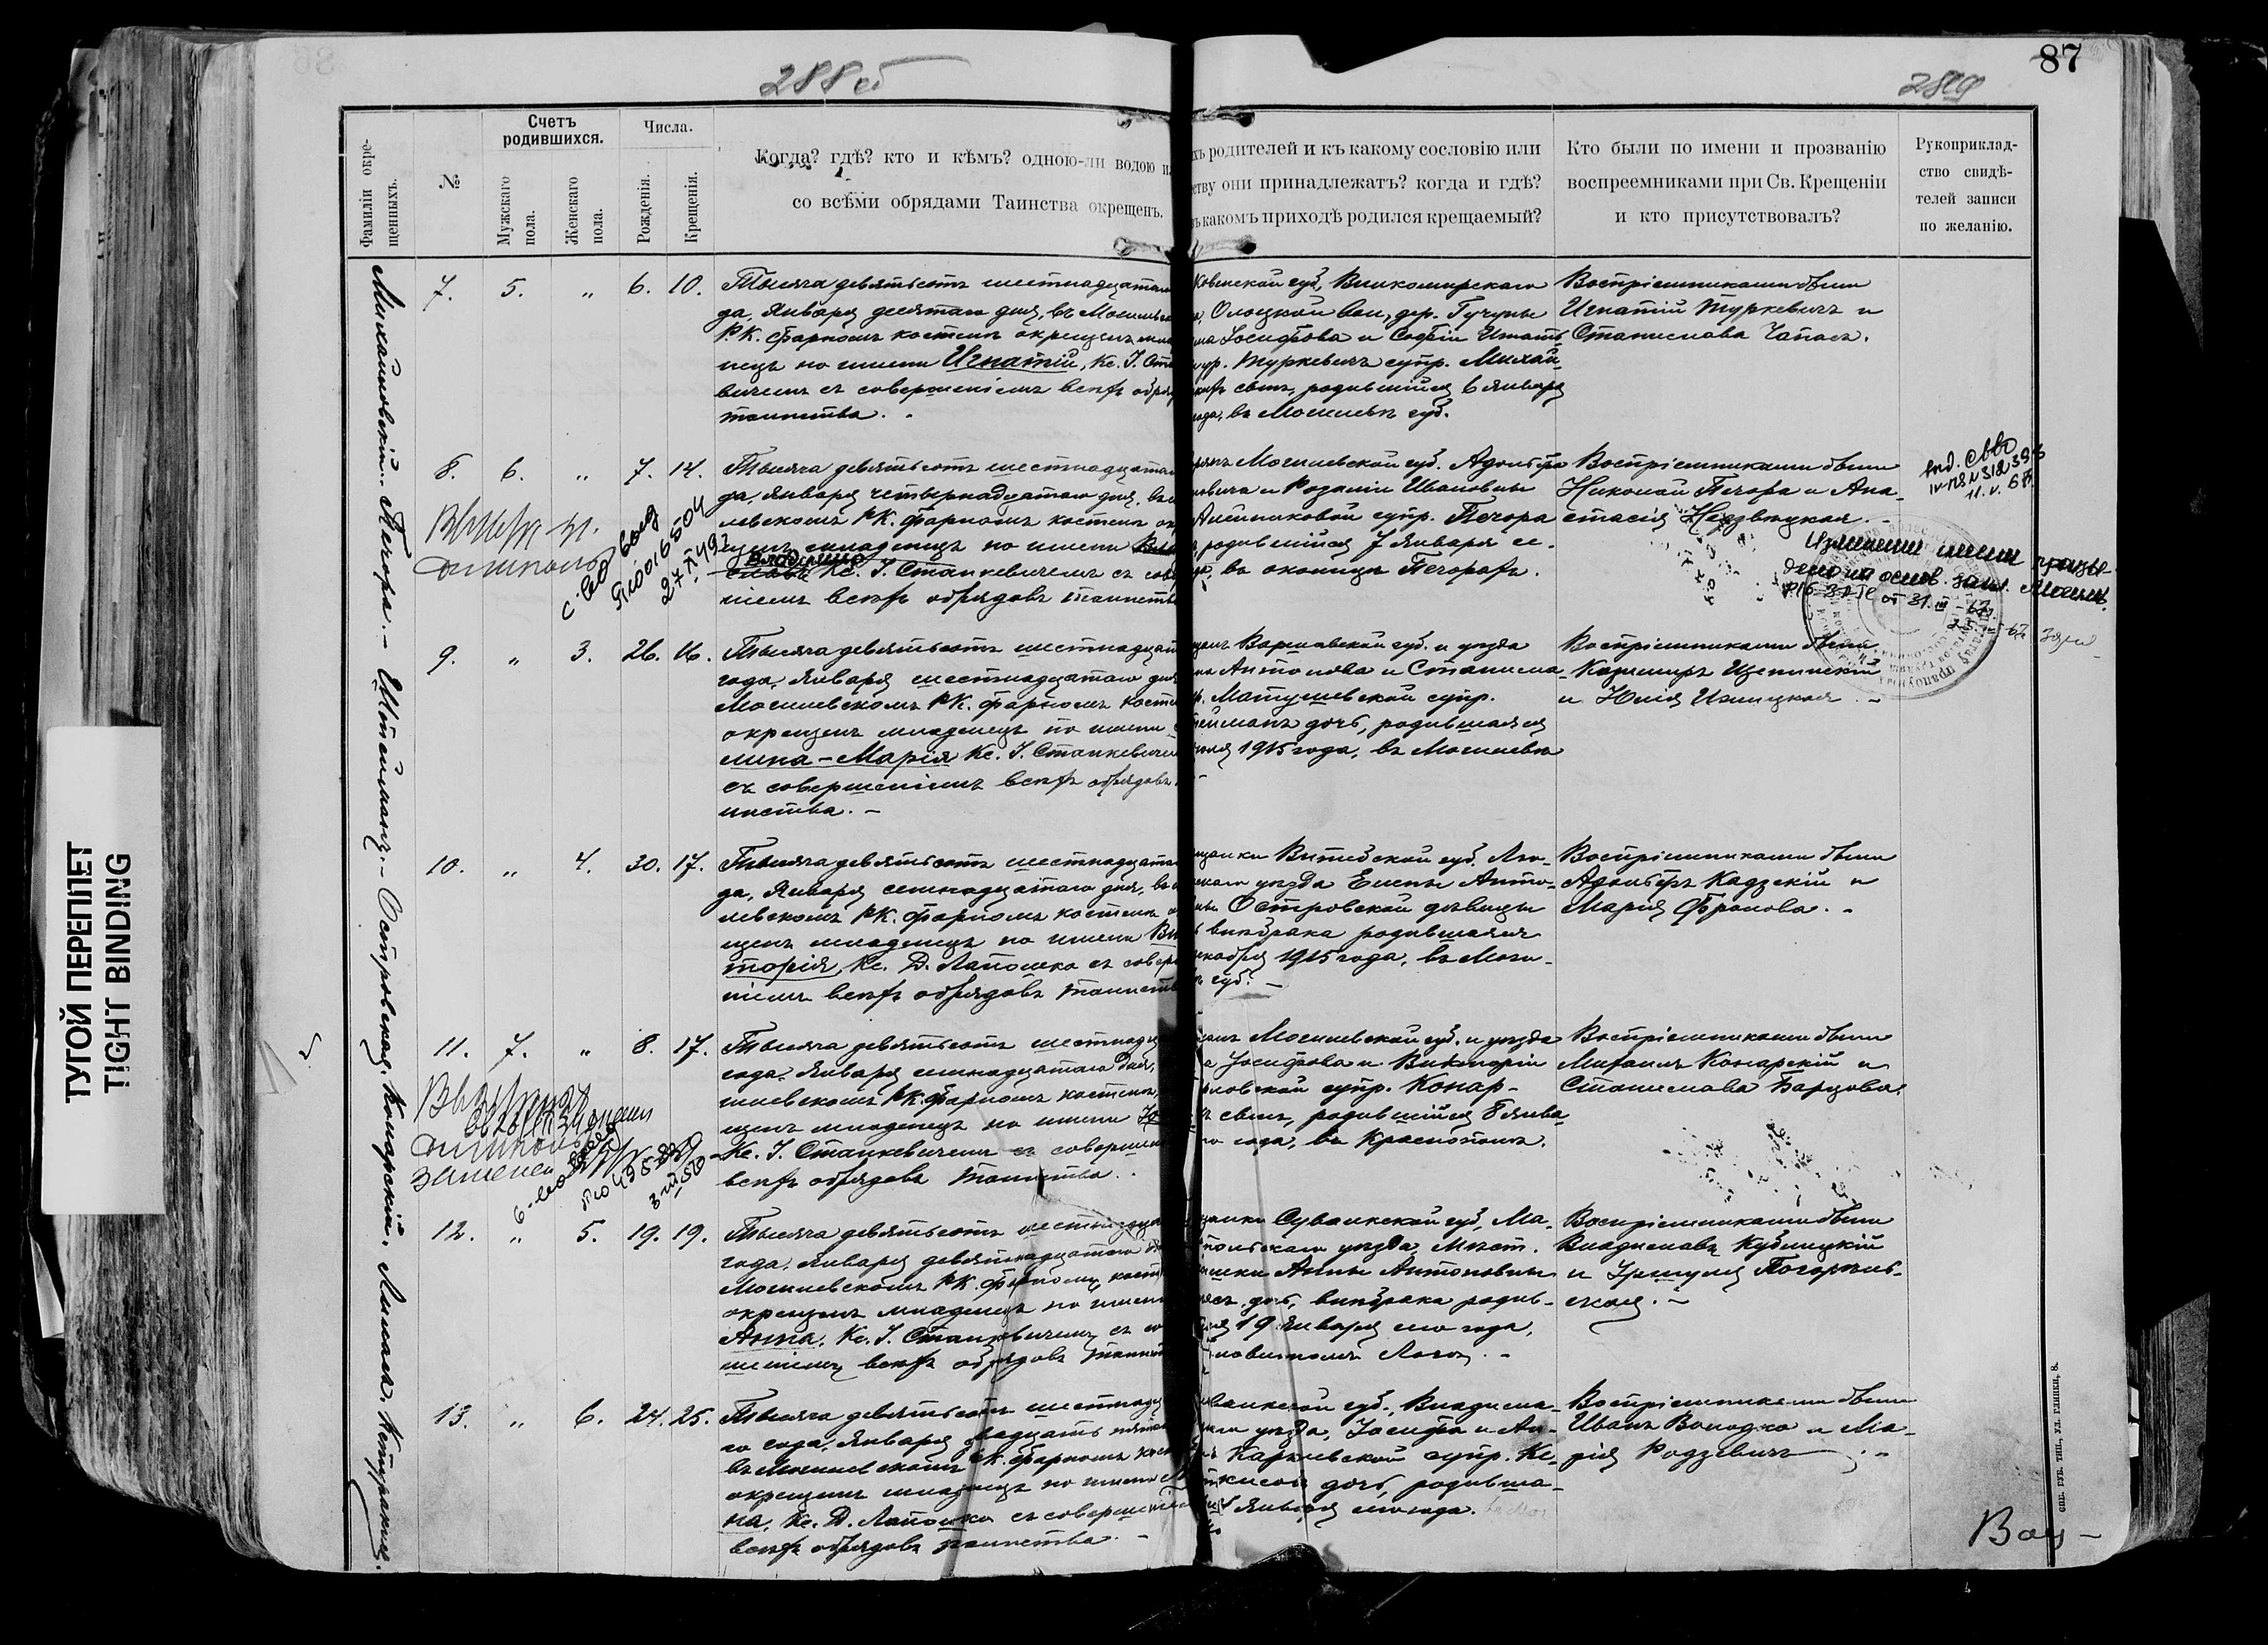 288об
87
289
ТУГОЙ ПЕРЕПЛЕТ
TIGHT BINDING
Фамиліи окре-
щенныхъ.
№
Счетъ
родившихся.
Мужскаго
пола.
Женскаго
пола.
Числа.
Рожденія.
Крещенія.
Когда? гдѣ? кто и кѣмъ? одною-ли водою и
со всѣми обрядами Таинства окрещенъ.
хъ родителей и къ какому сословію или
ству они принадлежатъ? когда и гдѣ?
ъ какомъ приходѣ родился крещаемый?
Кто были по имени и прозванію
воспреемниками при Св. Крещеніи
и кто присутствовалъ?
Рукоприклад-
ство свидѣ-
телей записи
по желанію.
Михайловскій. Печора. – Штейманъ. – Островская. Конарскій.
7. 5. „ 6. 10.
Тысяча девятьсотъ шестнадцатаго
да, Января десятаго дня, въ Могилевско
Р.К. фарномъ костелѣ окрещенъ мла
нецъ по имени Игнатій, Кс. І. Стан
вичемъ съ совершеніемъ всѣхъ обряд
таинства.
Ковенской губ., Вилкомирскаго
Олоцкой вол., дер. Гучуны
Іосифова и Софіи Игнать
ур. Туркевичъ супр. Михай
сынъ, родившійся 6 Января
года, въ Могилевѣ губ.
Воспріемниками были
Игнатій Туркевичъ и
Станислава Чапасъ.
8. 6. „ 7. 14.
Тысяча девятьсотъ шестнадцатаго
да, Января четырнадцатаго дня, въ
левскомъ Р.К. фарномъ костелѣ ок
щенъ младенецъ по имени
Владимир
славъ Кс. І. Станкевичемъ съ сов
ніемъ всѣхъ обрядовъ таинства
Могилевской губ. Адольфа
овича и Розаліи Ивановны
супр. Печора
родившійся 7 Января се-
въ околицѣ Печорахъ.
Воспріемниками были
Николай Печора и Ана-
стасія
11.V.67
Изменены имени произве-
дено на основ. закл. Могил.
от 31.III-67
9. „ 3. 26. 16.
Тысяча девятьсотъ шестнадцат
года, Января шестнадцатаго дня
Могилевскомъ Р.К. фарномъ косте
окрещенъ младенецъ по имени
лина-Марія Кс. І. Станкевичем
съ совершеніемъ всѣхъ обрядовъ
инства. –
Варшавской губ. и уѣзда
Антонова и Станисла-
Матушевской супр.
ейманъ дочь, родившаяся
1915 года, въ Могилевѣ
Воспріемниками были
Казимиръ Щепинскій
и Юлія
10. „ 4. 30. 17.
Тысяча девятьсотъ шестнадцата
да, Января семнадцатаго дня, въ
левскомъ Р.К. фарномъ костелѣ о
щенъ младенецъ по имени Вик
торія, Кс. Д. Лапошко съ совер
ніемъ всѣхъ обрядовъ таинств
щанки Витебской губ. Лю-
скаго уѣзда Елены Анто-
ны Островской дѣвицы
внѣбрака родившаяся
екабря 1915 года, въ Моги-
губ. –
Воспріемниками были
Адольфъ Кадзскій и
Марія Фролова. –
11. 7. „ 8. 17.
Тысяча девятьсотъ шестнадц
года, Января семнадцатаго дня,
гилевскомъ Р.К. фарномъ костелѣ
щенъ младенецъ по имени
Кс. І. Станкевичемъ съ соверше
всѣхъ обрядовъ таинства.
Могилевской губ. и уѣзда
Іосифова и Викторіи
супр. Конар-
сынъ, родившійся 8 Янва-
года, въ Краснополѣ.
Воспріемниками были
Михаилъ Конарскій и
Станислава Барцова.
12. „ 5. 19. 19.
Тысяча девятьсотъ шестнадца
года, Января девятнадцатаго
Могилевскомъ Р.К. фарномъ косте
окрещенъ младенецъ по имени
Анна, Кс. І. Станкевичемъ съ со
шеніемъ всѣхъ обрядовъ таинст
щанки Сувалкской губ., Ма-
польскаго уѣзда, Мѣст.
Анны Антоновны
дочь, внѣбрака родив-
19 Января сего года,
Воспріемниками были
Владиславъ Кублицкій
и Уршуля Погорѣль-
ская. –
13. „ 6. 24. 25.
Тысяча девятьсотъ шестнадца
го года, Января двадцать пятаго
въ Могилевскомъ Р.К. фарномъ кос
окрещенъ младенецъ по имени
на, Кс. Д. Лапошко съ совершеніем
всѣхъ обрядовъ таинства. –
валкской губ., Владисла-
уѣзда, Іосифа и Ан-
супр. Ке-
дочь, родивша-
Января сего года.
Воспріемниками были
Иванъ Володко и Ма-
рія Родзевичъ
СПБ. ГУБ. ТИП., УЛ. ГЛИНКИ, 8.